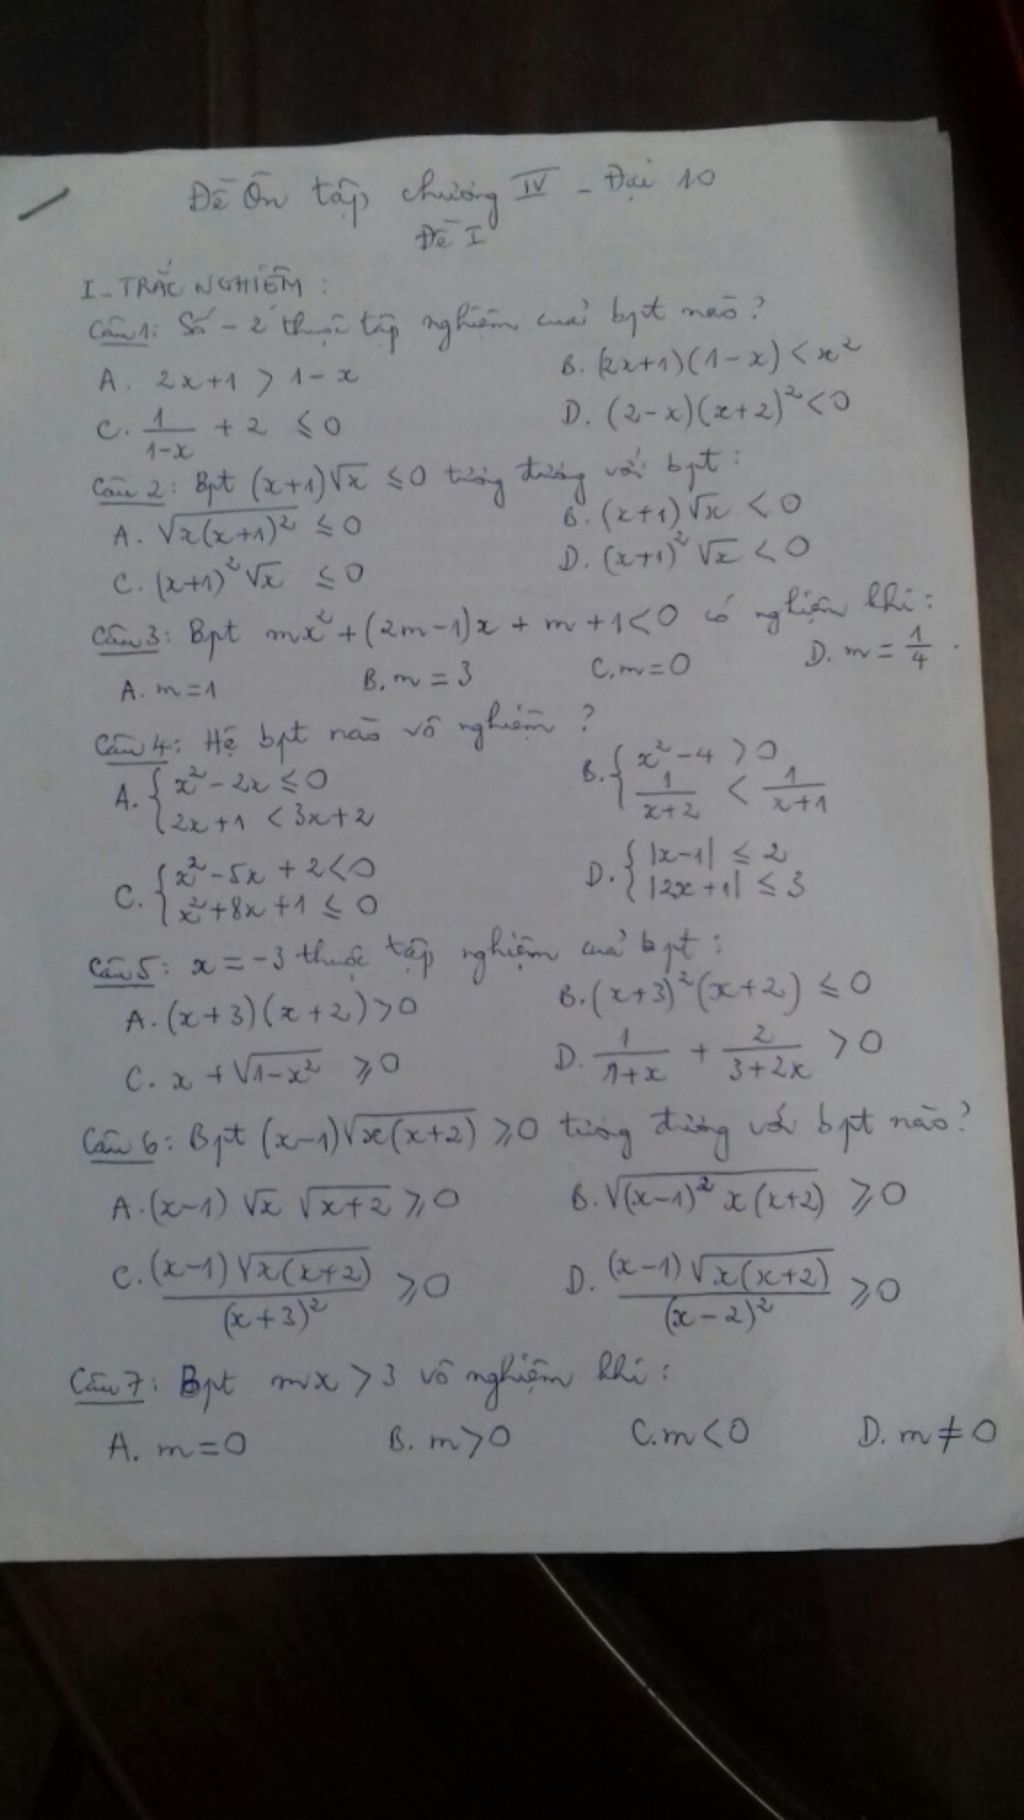 Đề Ôn tập chương IV - Đại 10
Đề I
I - TRẮC NGHIỆM :
Câu 1: Số -2 thuộc tập nghiệm của bpt nào?
A. 2x+1 > 1-x B. (2x+1)(1-x) < x²
C. 1/(1-x) + 2 ≤ 0 D. (2-x)(x+2)² < 0
Câu 2: Bpt (x+1)√x ≤ 0 tương đương với bpt :
A. √(x(x+1)²) ≤ 0 B. (x+1)√x < 0
C. (x+1)²√x ≤ 0 D. (x+1)²√x < 0
Câu 3: Bpt mx² + (2m-1)x + m + 1 < 0 có nghiệm khi :
A. m = 1 B. m = 3 C. m = 0 D. m = 1/4 .
Câu 4: Hệ bpt nào vô nghiệm ?
A. { x² - 2x ≤ 0 B. { x² - 4 > 0
2x+1 < 3x+2 1/(x+2) < 1/(x+1)
C. { x² - 5x + 2 < 0 D. { |x-1| ≤ 2
x² + 8x + 1 ≤ 0 |2x+1| ≤ 3
Câu 5: x = -3 thuộc tập nghiệm của bpt :
A. (x+3)(x+2) > 0 B. (x+3)²(x+2) ≤ 0
C. x + √(1-x²) ≥ 0 D. 1/(1+x) + 2/(3+2x) > 0
Câu 6: Bpt (x-1)√(x(x+2)) ≥ 0 tương đương với bpt nào?
A. (x-1)√x √(x+2) ≥ 0 B. √((x-1)² x(x+2)) ≥ 0
C. (x-1)√(x(x+2))/(x+3)² ≥ 0 D. (x-1)√(x(x+2))/(x-2)² ≥ 0
Câu 7: Bpt mx > 3 vô nghiệm khi :
A. m = 0 B. m > 0 C. m < 0 D. m ≠ 0